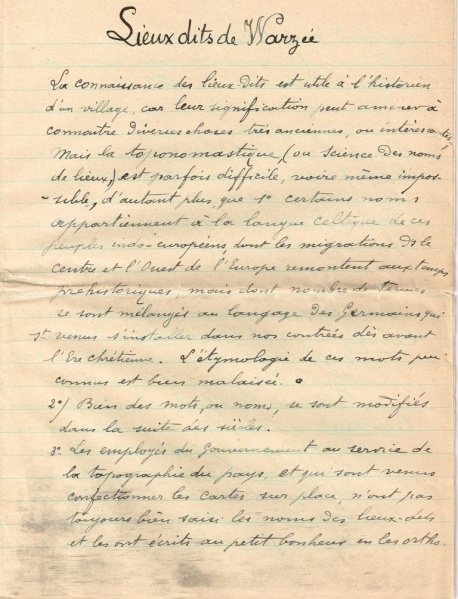 Lieux dits de Warzée
La connaissance des lieux-dits est utile à l'historien
d'un village, car leur signification peut amener à
connaitre diverses choses très anciennes, ou intéressantes;
Mais la toponomastique, (ou Science des noms
de lieux,) est parfois difficile, voire même impos-
-sible, d'autant plus, que 1° certains noms
appartiennent à la langue celtique de ces
peuples indo-européens dont les migrations ds le
centre et l'Ouest de l'Europe remontent aux temps
préhistoriques, mais dont nombre de termes
se sont mélangés au langage des Germains qui
st venus s'installer dans nos contrées dès avant
l'Ere chrétienne. L'étymologie de ces mots peu
connus est bien malaisée.
2°/ Bien des mots, ou noms, se sont modifiés
dans la suite des siècles.
3° Les employés du Gouvernement au service de
la topographie du pays, et qui sont venus
confectionner les cartes sur place, n'ont pas
toujours bien saisi les noms des lieux-dits
et les ont écrits au petit bonheur en les ortho-